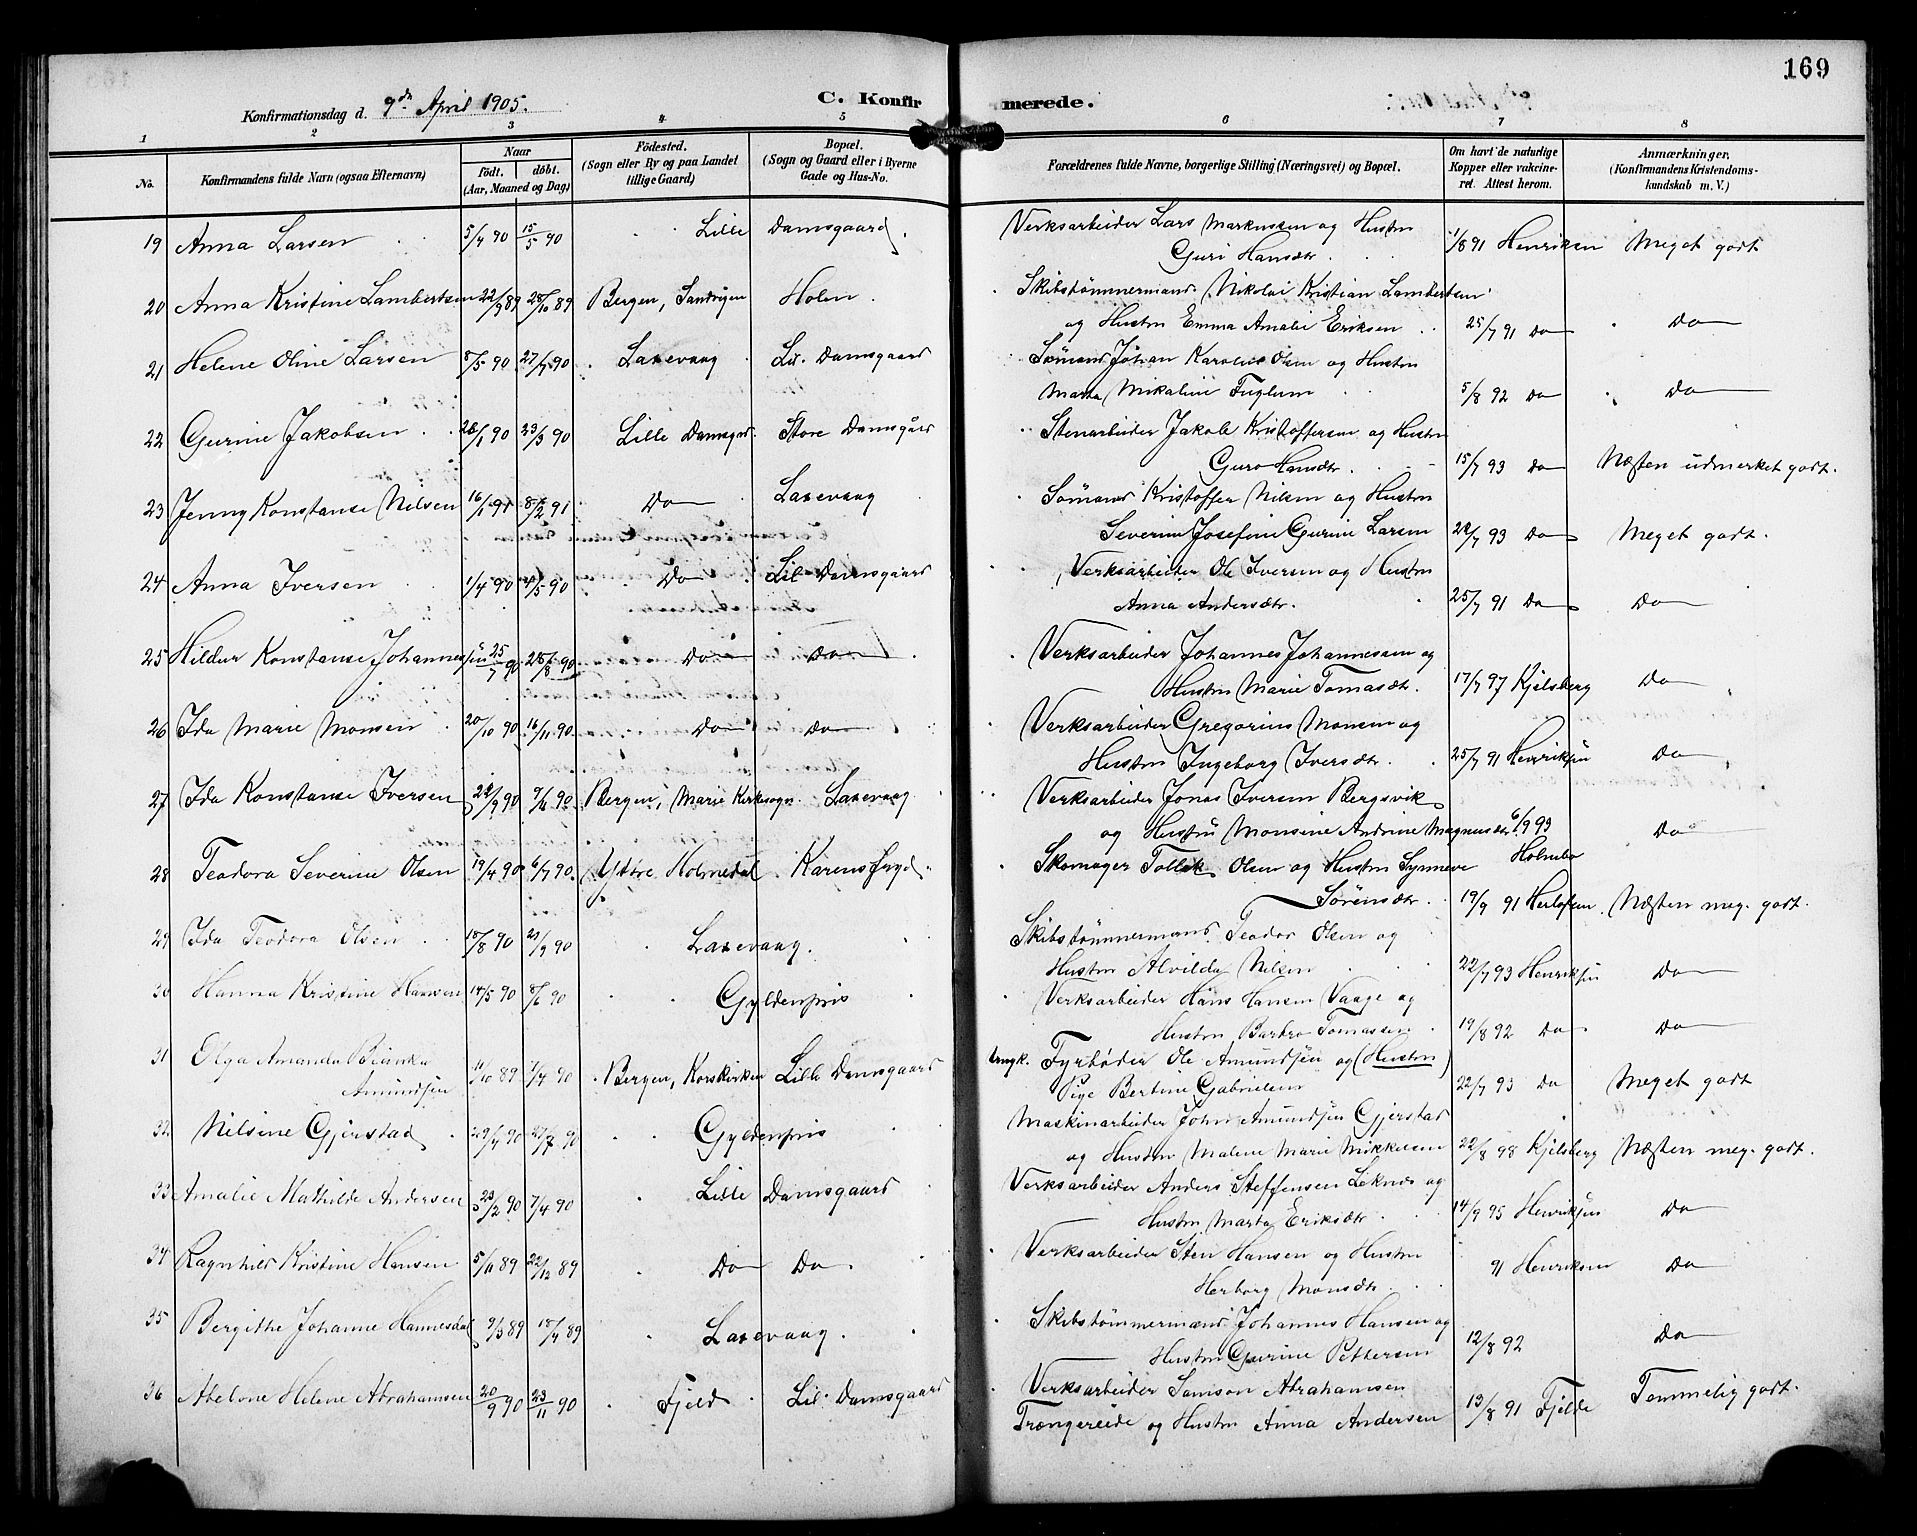 169
Konfirmationsdag d. 9de April 1905.
C. Konfirmerede.
1 2 3 4 5 6 7 8
No.
Konfirmandens fulde Navn (ogsaa Efternavn)
Naar
födt. döbt.
(Aar, Maaned og Dag)
Födested.
(Sogn eller By og paa Landet
tillige Gaard)
Bopæl.
(Sogn og Gaard eller i Byerne
Gade og Hus-No.
Forældrenes fulde Navne, borgerlige Stilling (Næringsvei) og Bopæl.
Om havt de naturlige
Kopper eller vakcine-
ret. Attest herom.
Anmærkninger.
(Konfirmandens Kristendoms-
kundskab m. V.)
19 Anna Larsen 5/4 90 15/5 90 Lille Damsgaard. Verksarbeider Lars Markussen og Hustru
Guri Hansdtr. 1/8 91 Henriksen Meget godt
20 Anna Kristine Lambertsen 22/9 89 28/10 89 Bergen, Sandvigen Holen. Skibstömmermand Nikolai Kristian Lambertsen
og Hustru Emma Amalie Eriksen 25/7 91 Do Do
21 Helene Oline Larsen 8/5 90 27/7 90 Laxevaag Lil. Damsgaard Sömand Johan Karolius Olsen og Hustru
Marta Mikaline Fuglum 5/8 92 Do Do
22 Gurine Jakobsen 28/1 90 23/3 90 Lille Damsgrd. Store Damsgård Stenarbeider Jakob Kristoffersen og Hustru
Guro Hansdtr. 15/7 93 Do Næsten udmerket godt.
23 Jenny Konstanse Nilsen 16/1 91 8/2 91 Do Laxevaag Sömand Kristoffer Nilsen og Hustru
Severine Josefine Gurine Larsen 22/7 93 Do Meget godt.
24 Anna Iversen 1/4 90 4/5 90 Do Lil. Damsgaard Verksarbeider Ole Iversen og Hustru
Anna Andersdtr. 25/7 91 Do Do
25 Hildur Konstanse Johannesen 25/7 90 /8 90 Do Do Verksarbeider Johannes Johannessen og
Hustru Marie Tomasdtr. 17/7 97 Kjelsberg Do
26 Ida Marie Monsen 20/10 90 16/11 90 Do Do Verksarbeider Gregorius Monsen og
Hustru Ingeborg Iversdtr. 25/7 91 Henriksen Do
27 Ida Konstanse Iversen /9 90 9/6 90 Bergen, Marie Kirkesogn. Laxevaag Verksarbeider Jonas Iversen Bergsvik
og Hustru Monsine Andrine Magnusdtr 6/9 93
Holmbo Do
28 Teodora Severine Olsen 19/4 90 6/7 90 Yttre Holmedal Karensfryd. Skomager Tollak Olsen og Hustru Synneve
Sörensdtr. 19/9 91 Herlofsen Næsten meg. godt.
29 Ida Teodora Olsen 18/8 90 21/9 90 Laxevaag. Skibstömmermand Teodor Olsen og
Hustru Alvilda Nilsen 22/7 93 Henriksen Do
30 Hanna Kristine Hansen 14/5 90 8/6 90 Gyldenpris Verksarbeider Hans Hansen Vaage og
Hustru Barbro Tomassen 19/8 92 Do Do
31 Olga Amanda Bianka
Amundsen 11/10 89 7/4 90 Bergen, Korskirken Lille Damsgaard Fyrböder Ole Amundsen og (Hustru)
Pige Bertine Gabrielsen 22/7 93 Do Meget godt
32 Nilsine Gjerstad 29/4 90 27/7 90 Gyldenpris Maskinarbeider John Amundsen Gjerstad
og Hustru Malene Marie Mikkelsen 22/8 98 Kjelsberg Næsten meg. godt.
33 Amalie Mathilde Andersen 23/2 90 7/4 90 Lille Damsgaard Verksarbeider Anders Steffensen Leknes og
Hustru Marta Eriksdtr 14/9 95 Henriksen Do
34 Ragnhild Kristine Hansen 5/11 89 22/12 89 Do Do Verksarbeider Sten Hansen og Hustru
Herborg Monsdtr 91 Henriksen Do
35 Bergithe Johanne Hannesdal 9/3 89 18/4 89 Laxevaag. Skibstömmermand Johannes Hansen og
Hustru Gurine Pettersen 12/8 92 Do
36 Abelone Helene Abrahamsen 20/9 90 23/11 90 Fjeld Lil. Damsgaard Verksarbeider Samson Abrahamsen
Trængereide og Hustru Anna Andersen 13/8 91 Fjelde Temmelig godt.